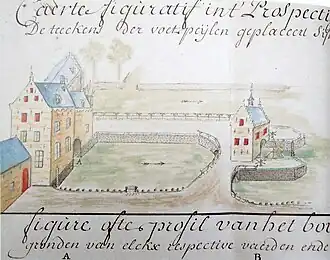 Caerte figuratif int' Prospecti
De teeckens der voetspeylen geplaceert
figure ofte profil van het bo
gronden van elcke respective vaerden ende
A B